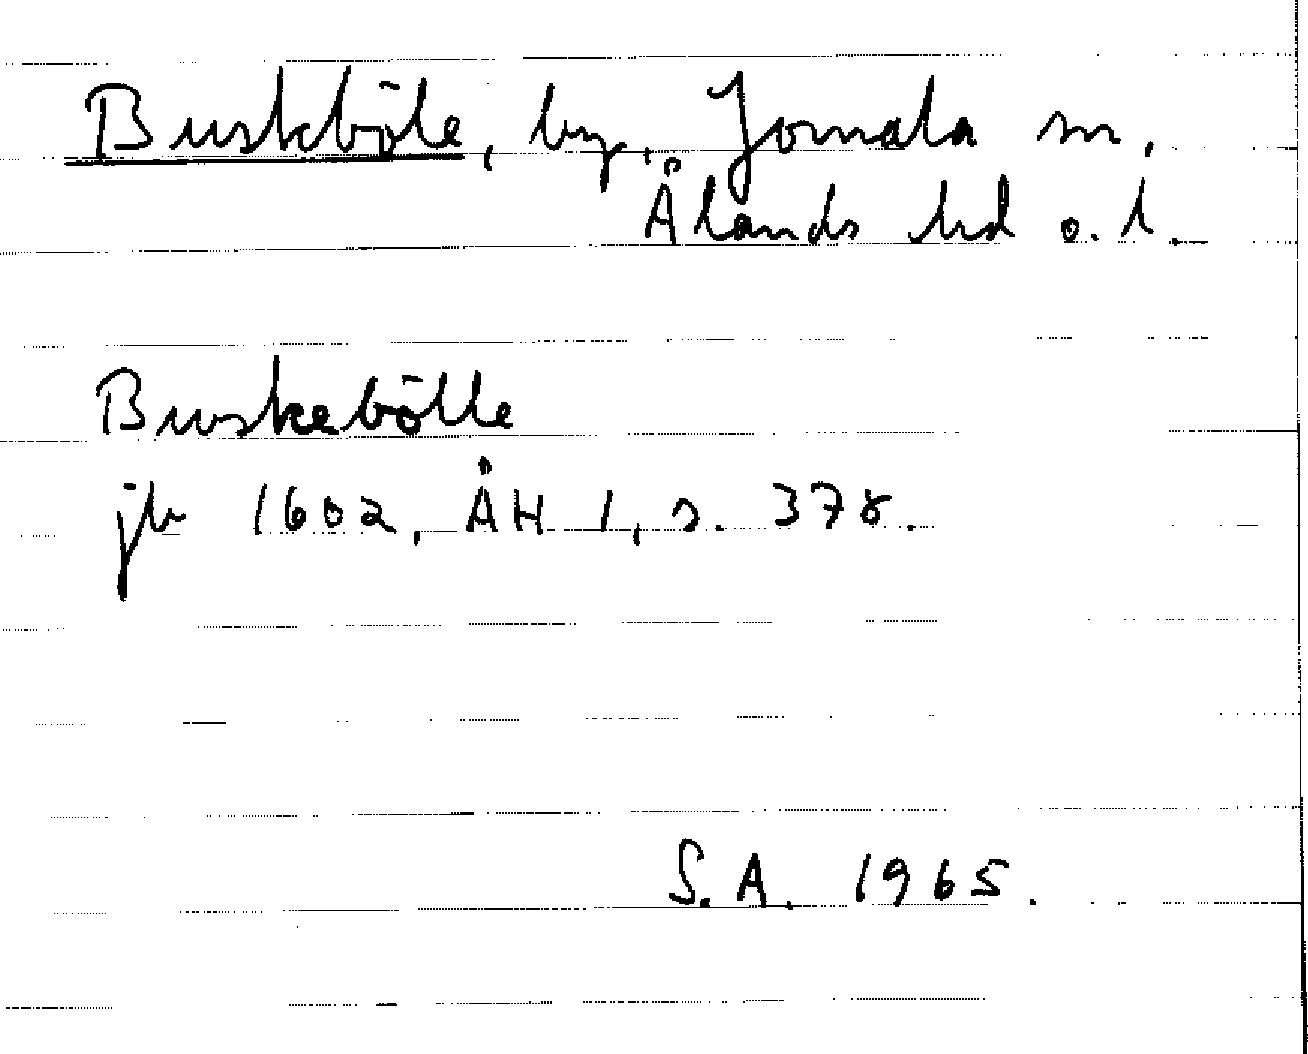 Buskböle, by, Jomala sn,
Ålands hd o. l.
Buskebölle
jb 1602, ÅH 1, s. 378.
S.A. 1965.